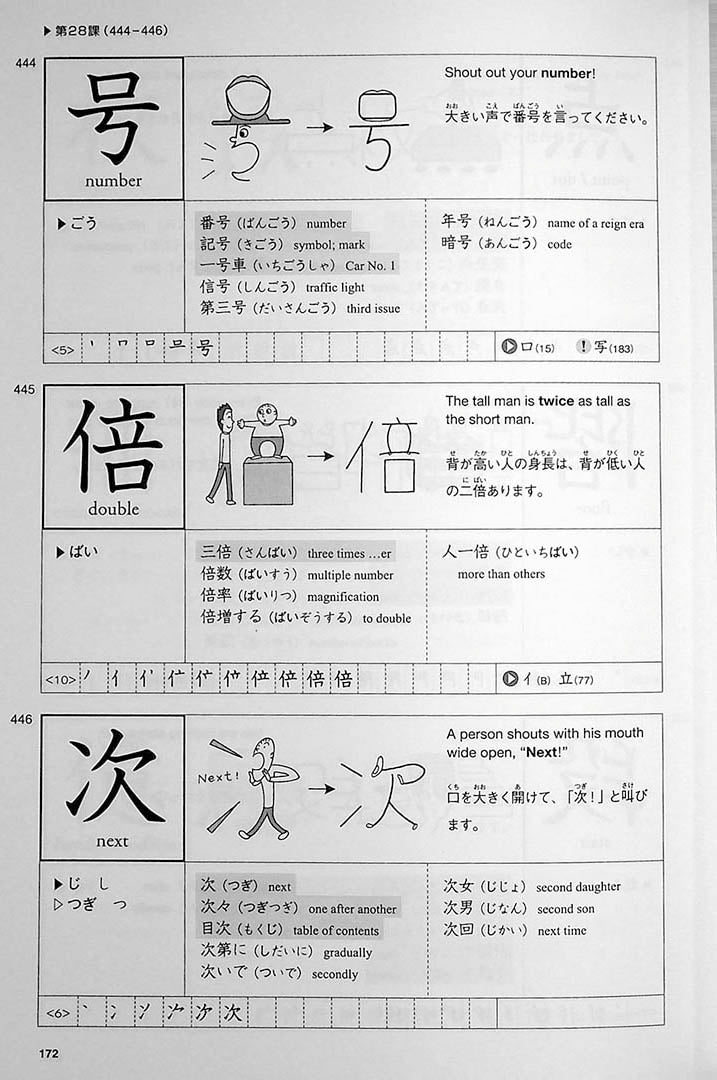 ▶第28課(444−446)
444
号
number
Shout out your number!
おお こえ ばんごう い
大きい声で番号を言ってください。
▶ごう
番号(ばんごう) number
記号(きごう) symbol; mark
一号車(いちごうしゃ) Car No. 1
信号(しんごう) traffic light
第三号(だいさんごう) third issue
年号(ねんごう) name of a reign era
暗号(あんごう) code
<5>
号
口(15) 写(183)
445
倍
double
The tall man is twice as tall as
the short man.
せ たか ひと しんちょう せ ひく ひと
背が高い人の身長は、背が低い人
に ばい
の二倍あります。
▶ばい
三倍(さんばい) three times …er
倍数(ばいすう) multiple number
倍率(ばいりつ) magnification
倍増する(ばいぞうする) to double
人一倍(ひといちばい)
more than others
<10>
倍
イ(B) 立(77)
446
次
next
Next!
A person shouts with his mouth
wide open, “Next!”
くち おお あ つぎ さけ
口を大きく開けて、「次!」と叫び
ます。
▶じ し
▷つぎ つ
次(つぎ) next
次々(つぎつぎ) one after another
目次(もくじ) table of contents
次第に(しだいに) gradually
次いで(ついで) secondly
次女(じじょ) second daughter
次男(じなん) second son
次回(じかい) next time
<6>
次
172